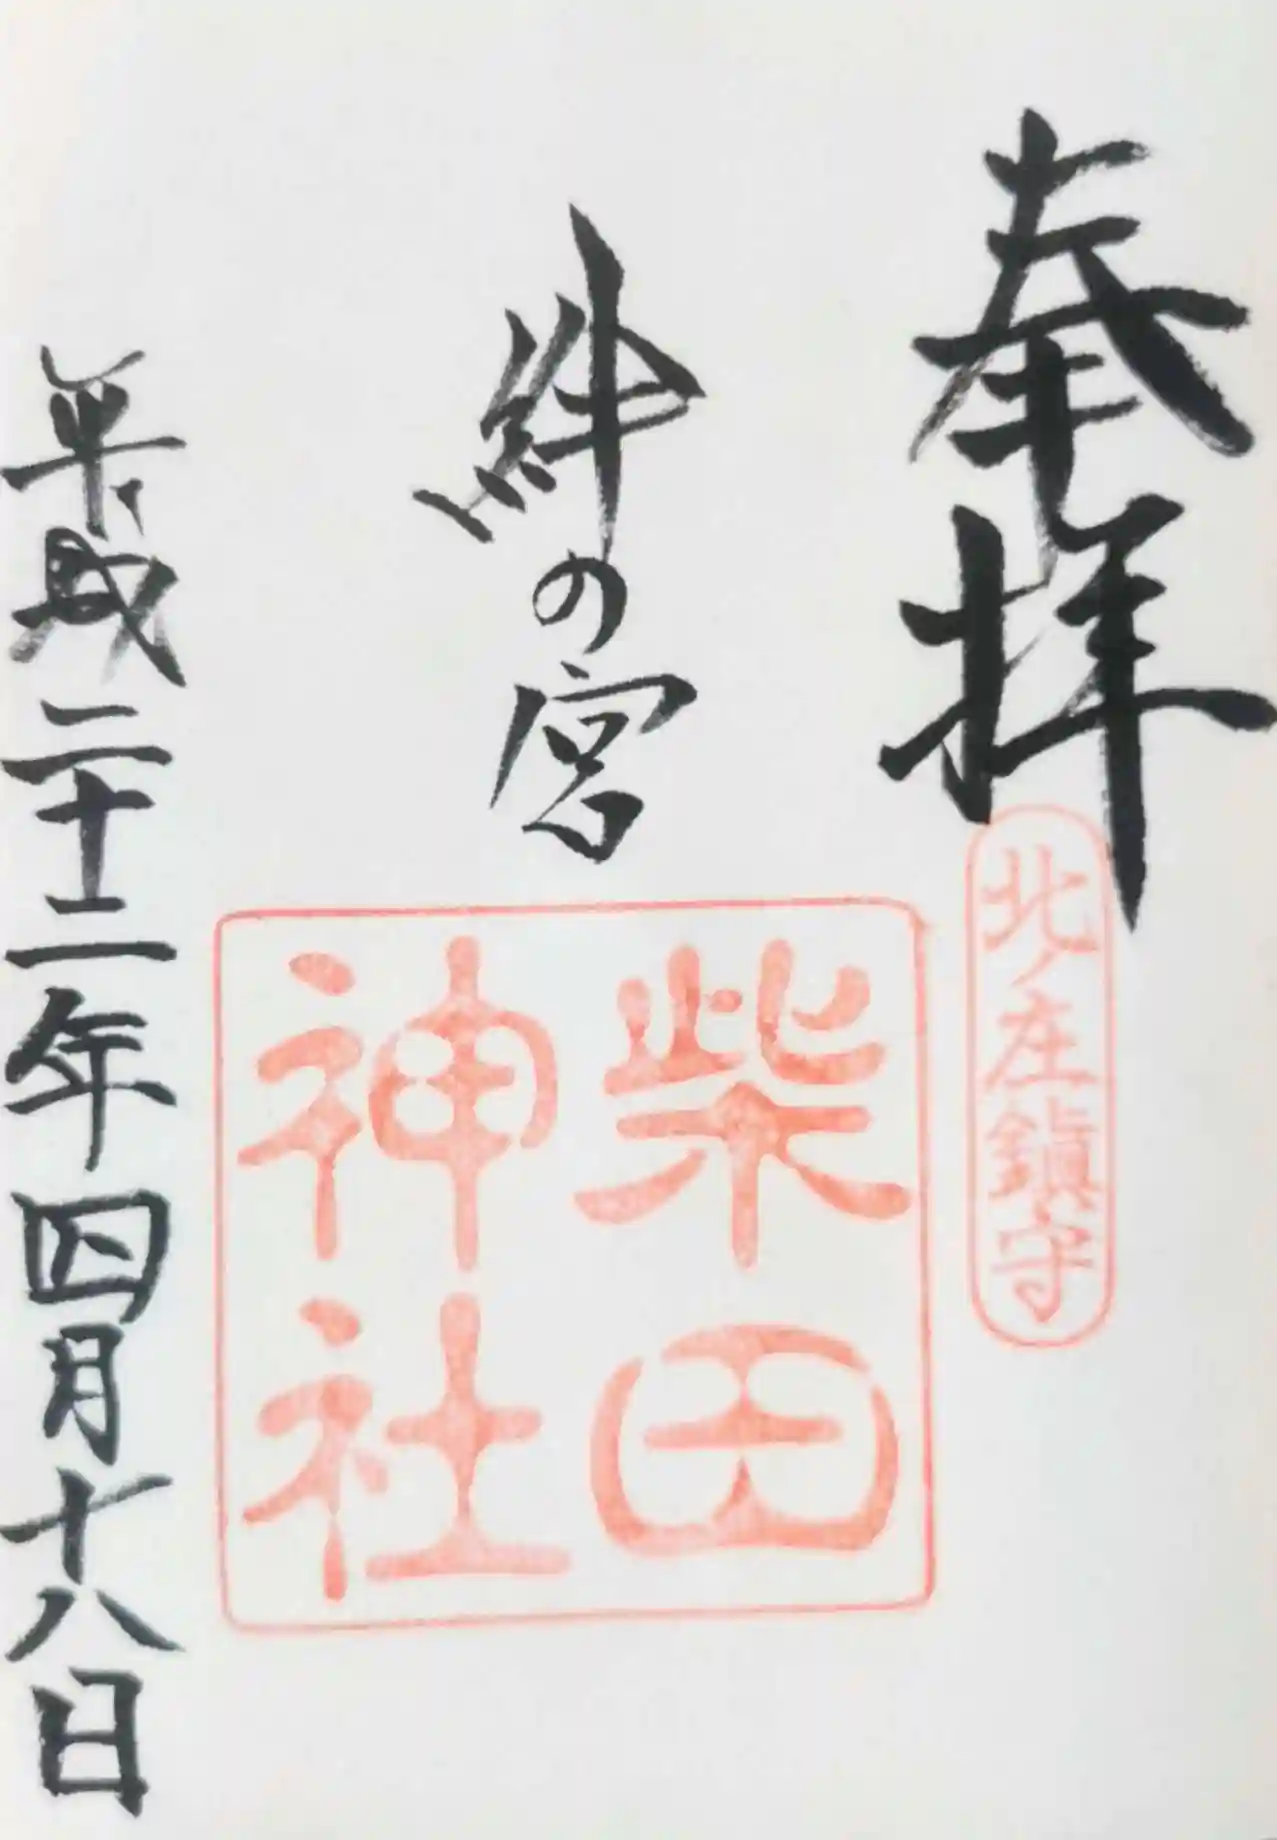 奉拝
北ノ庄鎮守
絆の宮
柴田
神社
平成二十二年四月十八日